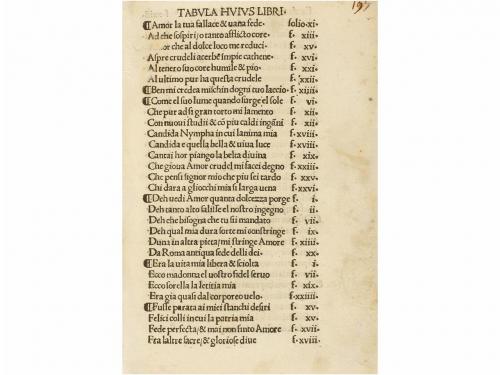 TABVLA HVIVS LIBRI.
¶Amor la tua fallace & uana fede. folio.xi.
Ad che sospiri/o tanto afflicto core f. xiii.
or che al dolce loco me reduci. f. xv.
Aspre crudeli acerbe impie cathene. f. xvi.
Al tenero suo core humile & pio. f. xxi.
Al ultimo pur ha questa crudele f. xxii.
¶Ben mi credea mischin dogni tuo laccio. f. xiiii.
¶Come el suo lume quando surge el sole f. vi.
Che pur ad si gran torto mi lamento f. xii.
Con nuoui studii & cō piu caldi ingāni f. xii.
Candida Nympha in cui lanima mia f. xviii.
Candida e quella bella & uiua luce f. xviii.
Cantai hor piango la belta diuina f. xix.
Che gioua Amor crudel mi facci degno f. xxiii.
Che pensi signor mio che piu sei tardo f. xxv.
Chi dara a gliocchi mia si larga uena f. xxvi.
¶Deh uedi Amor quanta dolcezza porge f. i.
Deh tanto alto salisse el nostro ingegno f. ii.
Deh che bisogna che tu sii mandato f. vii.
Deh qual mia dura sorte mi constringe f. ix.
Duna in altra pieta/mi stringe Amore f. xiiii.
Da Roma antiqua sede delli dei. f. xvii.
¶Era la uita mia libera & sciolta f. i.
Ecco madonna el uostro fidel seruo f. vii.
Ecco sorella la letitia mia f. xix.
Era gia quasi dal corporeo uelo. f. xxiiii.
¶Fusse parata ai miei stanchi desiri f. xv.
Felici colli in cui la patria mia f. xv.
Fede perfecta/& mai non finto Amore f. xvii.
Fra laltre sacre/& gloriose diue f. xviii.